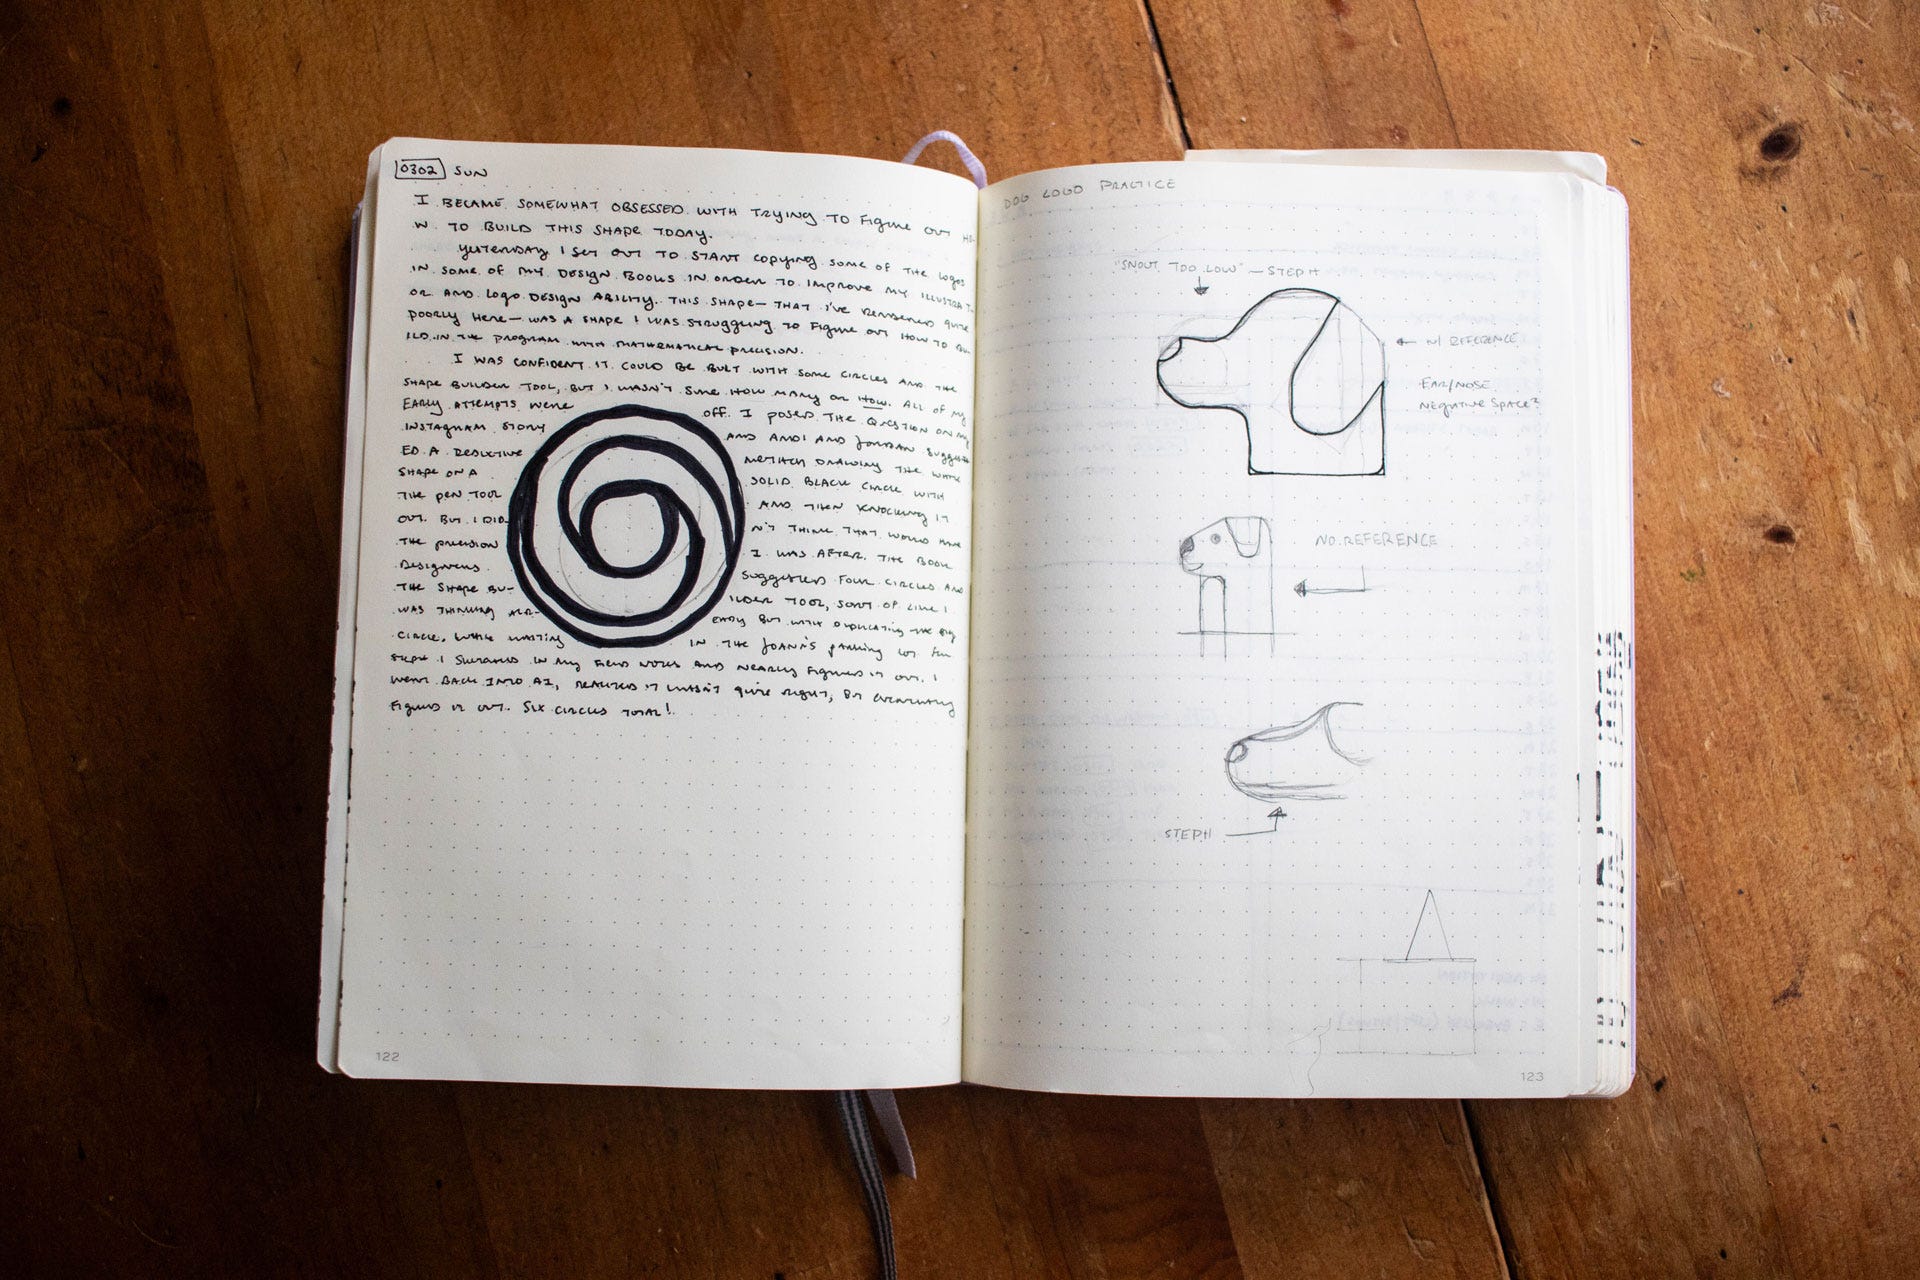 0302 SUN
I BECAME SOMEWHAT OBSESSED WITH TRYING TO FIGURE OUT HO-
W TO BUILD THIS SHAPE TODAY.
YESTERDAY I SET OUT TO START COPYING SOME OF THE LOGOS
IN SOME OF MY DESIGN BOOKS IN ORDER TO IMPROVE MY ILLUSTRAT-
OR AND LOGO DESIGN ABILITY. THIS SHAPE — THAT I'VE RENDERED QUITE
POORLY HERE — WAS A SHAPE I WAS STRUGGLING TO FIGURE OUT HOW TO BU-
ILD IN THE PROGRAM WITH MATHEMATICAL PRECISION.
I WAS CONFIDENT IT COULD BE BUILT WITH SOME CIRCLES AND THE
SHAPE BUILDER TOOL, BUT I WASN'T SURE HOW MANY OR HOW. ALL OF MY
EARLY ATTEMPTS WERE OFF. I POSED THE QUESTION ON MY
INSTAGRAM STORY AND ANDI AND JORDAN SUGGEST-
ED A REDUCTIVE METHOD DRAWING THE WHITE
SHAPE ON A SOLID BLACK CIRCLE WITH
THE PEN TOOL AND THEN KNOCKING IT
OUT. BUT I DID- N'T THINK THAT WOULD HAVE
THE PRECISION I WAS AFTER. THE BOOK
DESIGNERS SUGGESTED FOUR CIRCLES AND
THE SHAPE BU- ILDER TOOL, SORT OF LIKE I
WAS THINKING ALR- EADY BUT WITH DUPLICATING THE BIG
CIRCLE. WHILE WAITING IN THE JOANN'S PARKING LOT FOR
STEPH I SKETCHED IN MY FIELD NOTES AND NEARLY FIGURED IT OUT. I
WENT BACK INTO AI, REALIZED IT WASN'T QUITE RIGHT, BUT EVENTUALLY
FIGURED IT OUT. SIX CIRCLES TOTAL!
122
DOG LOGO PRACTICE
"SNOUT TOO LOW" — STEPH
W/ REFERENCE
EAR/NOSE
NEGATIVE SPACE?
NO REFERENCE
STEPH
123